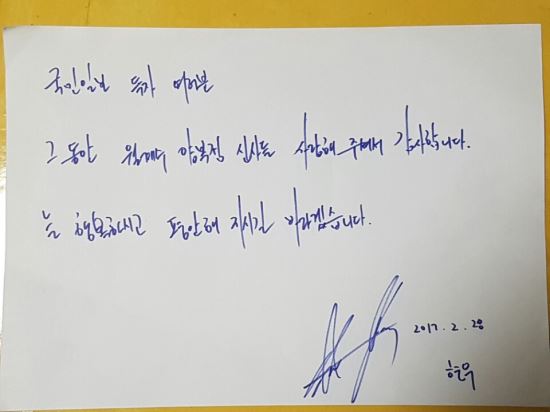 국민일보 독자 여러분
그동안 월계수 양복점 신사들 사랑해 주셔서 감사합니다.
늘 행복하시고 평안해 지시길 바라겠습니다.
2017. 2. 28
현우